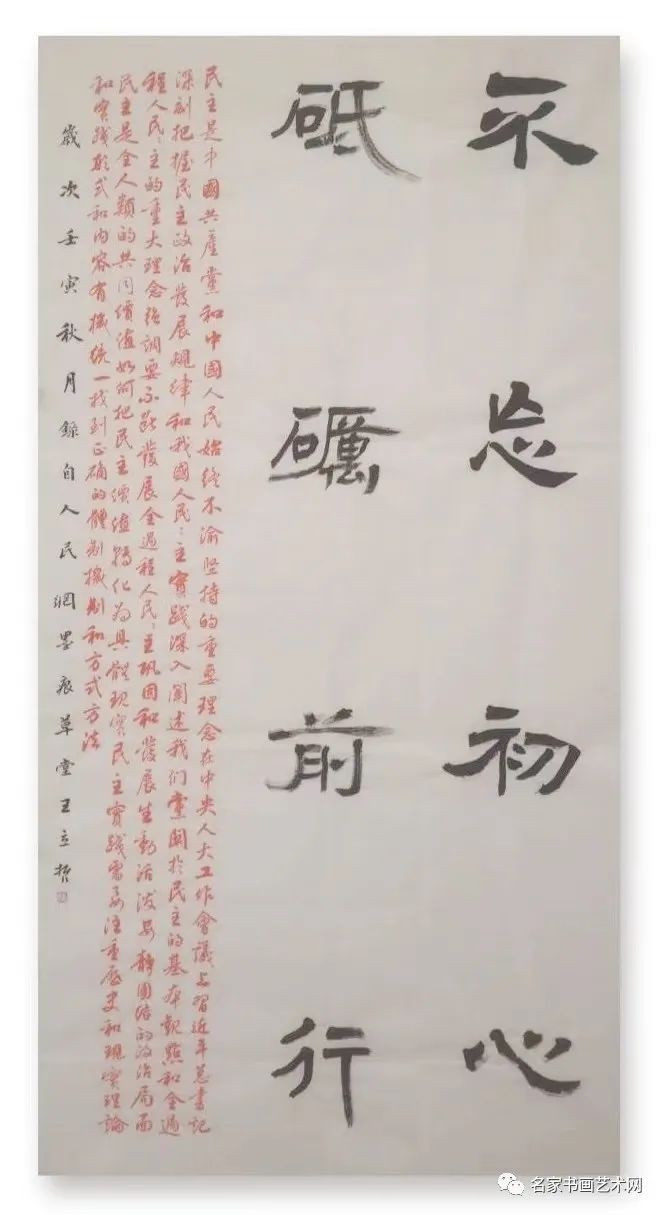 不忘初心
砥礪前行
民主是中國共產黨和中國人民始終不渝堅持的重要理念在中央人大工作會議上習近平总書記
深刻把握民主政治發展規律和我國人民〻主實踐深入闡述我们黨關於民主的基本觀點和全過
程人民〻主的重大理念强調要不斷發展全過程人民〻主巩固和發展生動活泼安静團结的政治局面
民主是全人類的共同價值如何把民主價值轉化為具體现實民主實踐需要注重歷史和現實理論
和實踐形式和内容有機統一找到正确的體制機制和方式方法
歲次壬寅秋月錄自人民網墨痕草堂王立
名家书画艺术网